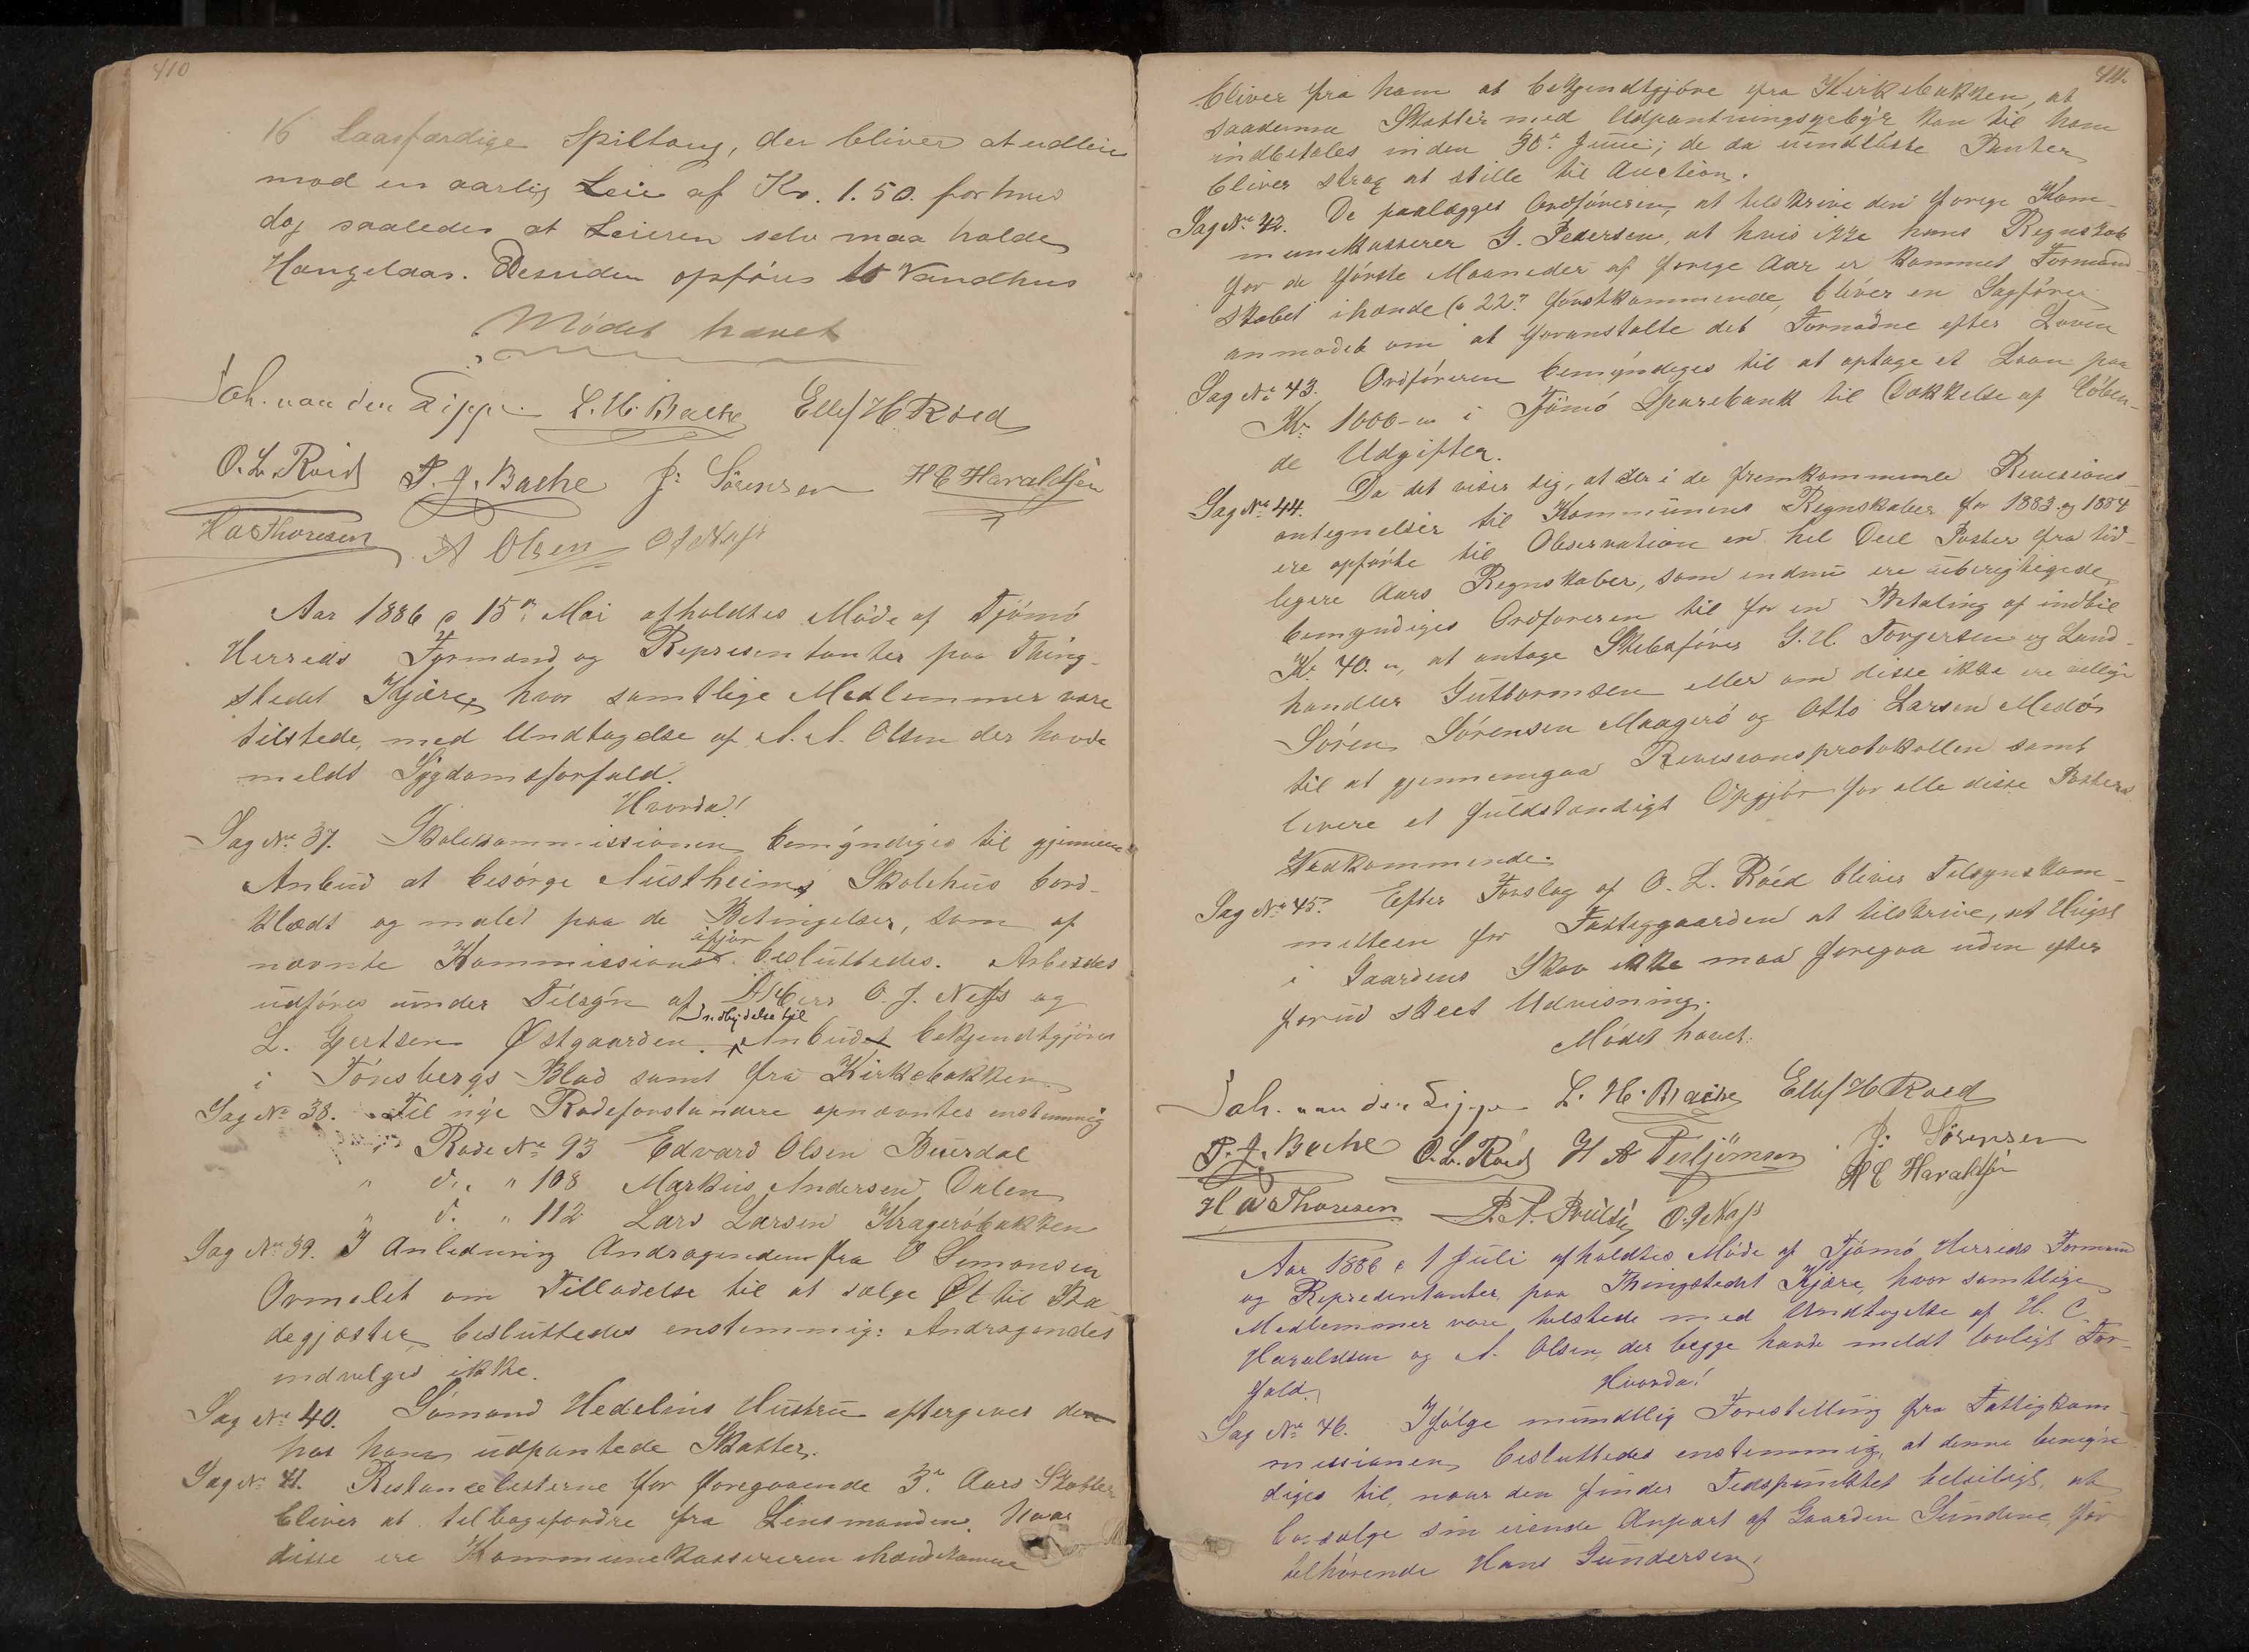 410
16 Laasfærdige Spiltoug, der bliver at udleie
mod en aarlig Leie af Kr. 1.50. for hver
dog saaledes at Leieren selv maa holde
Hængelaas. Desuden opføres to Vandhus
Mødet hævet
Joh. van der Lippe L. H. Bache Ellef H Røed
O. L. Røed P. J. Bache J: Sørensen H C Haraldsen
H a Thoresen A Olsen O J Næss
Aar 1886 d 15de Mai afholdtes Møde af Tjømø
Herreds Formænd og Repræsentanter paa Thing-
stedet Kjære, hvor samtlige Medlemmer vare
tilstede, med Undtagelse af A. A. Olsen der havde
meldt Sygdomsforfald.
Hvorda!
Sag No 37. Skolekommissionen bemyndiges til gjennem
Anbud at besørge Austheims Skolehus bord-
klædt og malet paa de Betingelser, som af
nævnte Kommission ifjor besluttedes. Arbeidet
udføres under Tilsyn af D'Herr O. J. Næss og
L. Gertsen Østgaarden. Indbydelse til Anbudet bekjendtgjøres
i Tønsbergs Blad samt fra Kirkebakken.
Sag No 38. Til nye Rodeforstandere opnævntes enstemmig
Rode No 93 Edvard Olsen Buerdal
" d. " 108 Markus Andersen Oulen
" d. " 112 Lars Larsen Kragerøbakken
Sag No 39. I Anledning Andragendem fra O Simonsen
Ormelet om Tilladelse til at sælge Øl til Ba-
degjæster, besluttedes enstemmig: Andragendet
indvilges ikke.
Sag No 40. Sømand Hedelins Hustru eftergives de
hos ham udpantede Skatter.
Sag No 41. Restancelisterne for foregaaende 3de Aars Skatter
bliver at tilbagefordre fra Lensmanden. Naar
disse ere Kommunekassereren ihændekomne
411.
bliver fra ham at bekjendtgjøre fra Kirkebakken, at
saadanne Skatter med Udpantningsgebyr kan til ham
indbetales inden 30te Juni; de da uindløste Panter
bliver strax at stille til Auction.
Sag No 42. De paalægges Ordføreren, at tilskrive den forrige Kom-
munekasserer G. Pedersen, at hvis ikke hans Regnskab
for de første Maaneder af forrige Aar er kommet Formand-
skabet ihænde d 22de førstkommende, bliver en Sagfører
anmodet om at foranstalte det Fornødne efter Loven
Sag No 43. Ordføreren bemyndiges til at optage et Laan paa
Kr 1000- i Tjømø Sparebank til Dækkelse af løben-
de Udgifter.
Sag No 44. Da det viser sig, at der i de fremkommende Revisions-
antegnelser til Kommunens Regnskaber for 1883 og 1884
ere opførte til Observation en hel Deel Poster fra tid-
ligere Aars Regnskaber, som endnu ere uberigtigede,
bemyndiges Ordføreren til for en Betaling af indtil
Kr 40. at antage Skibsfører G. H. Torgersen og Land-
handler Guttormsen eller om disse ikke ere villige
Søren Sørensen Maagerø og Otto Larsen Medø
til at gjennemgaa Revisionsprotokollen samt
levere et fuldstændigt Opgjør for alle disse Posters
Vedkommende.
Sag No 45. Efter Forslag af O. L. Røed bliver Tilsynskom-
miteen for Fattiggaarden at tilskrive, at Hugst
i Gaardens Skov ikke maa foregaa uden efter
forud skeet Udvisning.
Mødet hævet.
Joh. van der Lippe L. H. Bache Ellef H Røed
P. J. Bache O. L. Røed J: Sørensen
H C Haraldsen
H a Thoresen O. J Næss
Aar 1886 d 1 Juli afholdtes Møde af Tjømø Herreds Formænd
og Repræsentanter paa Thingstedet Kjære, hvor samtlige
Medlemmer vare tilstede med Undtagelse af H. C.
Haraldsen og A. Olsen, der begge havde meldt lovligt For-
fald.
Hvorda!
Sag No 46. Ifølge mundtlig Forestilling fra Fattigkom-
missionen besluttedes enstemmig, at denne bemyn-
diges til, naar den finder Tidspunktet beleiligt, at
bortsælge sin eiende Anpart af Gaarden Sundene, før
tilhørende Hans Gundersen,